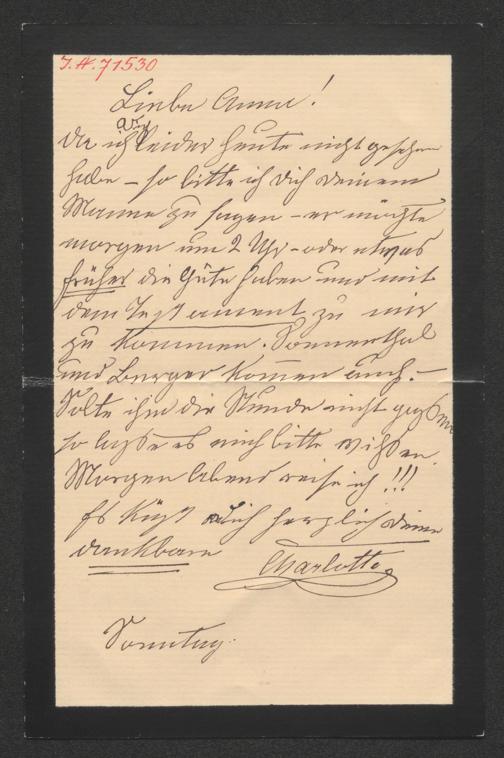 I.N. 71530
Liebe Anna!
Da ich Dich leider heute nicht gesehen
habe – so bitte ich Dich deinem
Manne zu sagen – er möchte
morgen um 2 Uhr – oder etwas
früher die Güte haben und mit
dem Testament zu mir
zu kommen. Sonnenthal
und Berger kommen auch. –
Solte ihm die Stunde nicht
so laße es mich bitte wißen.
Morgen Abend reise ich!!!
Es küßt dich herzlich deine
dankbare Charlotte
Sonntag.